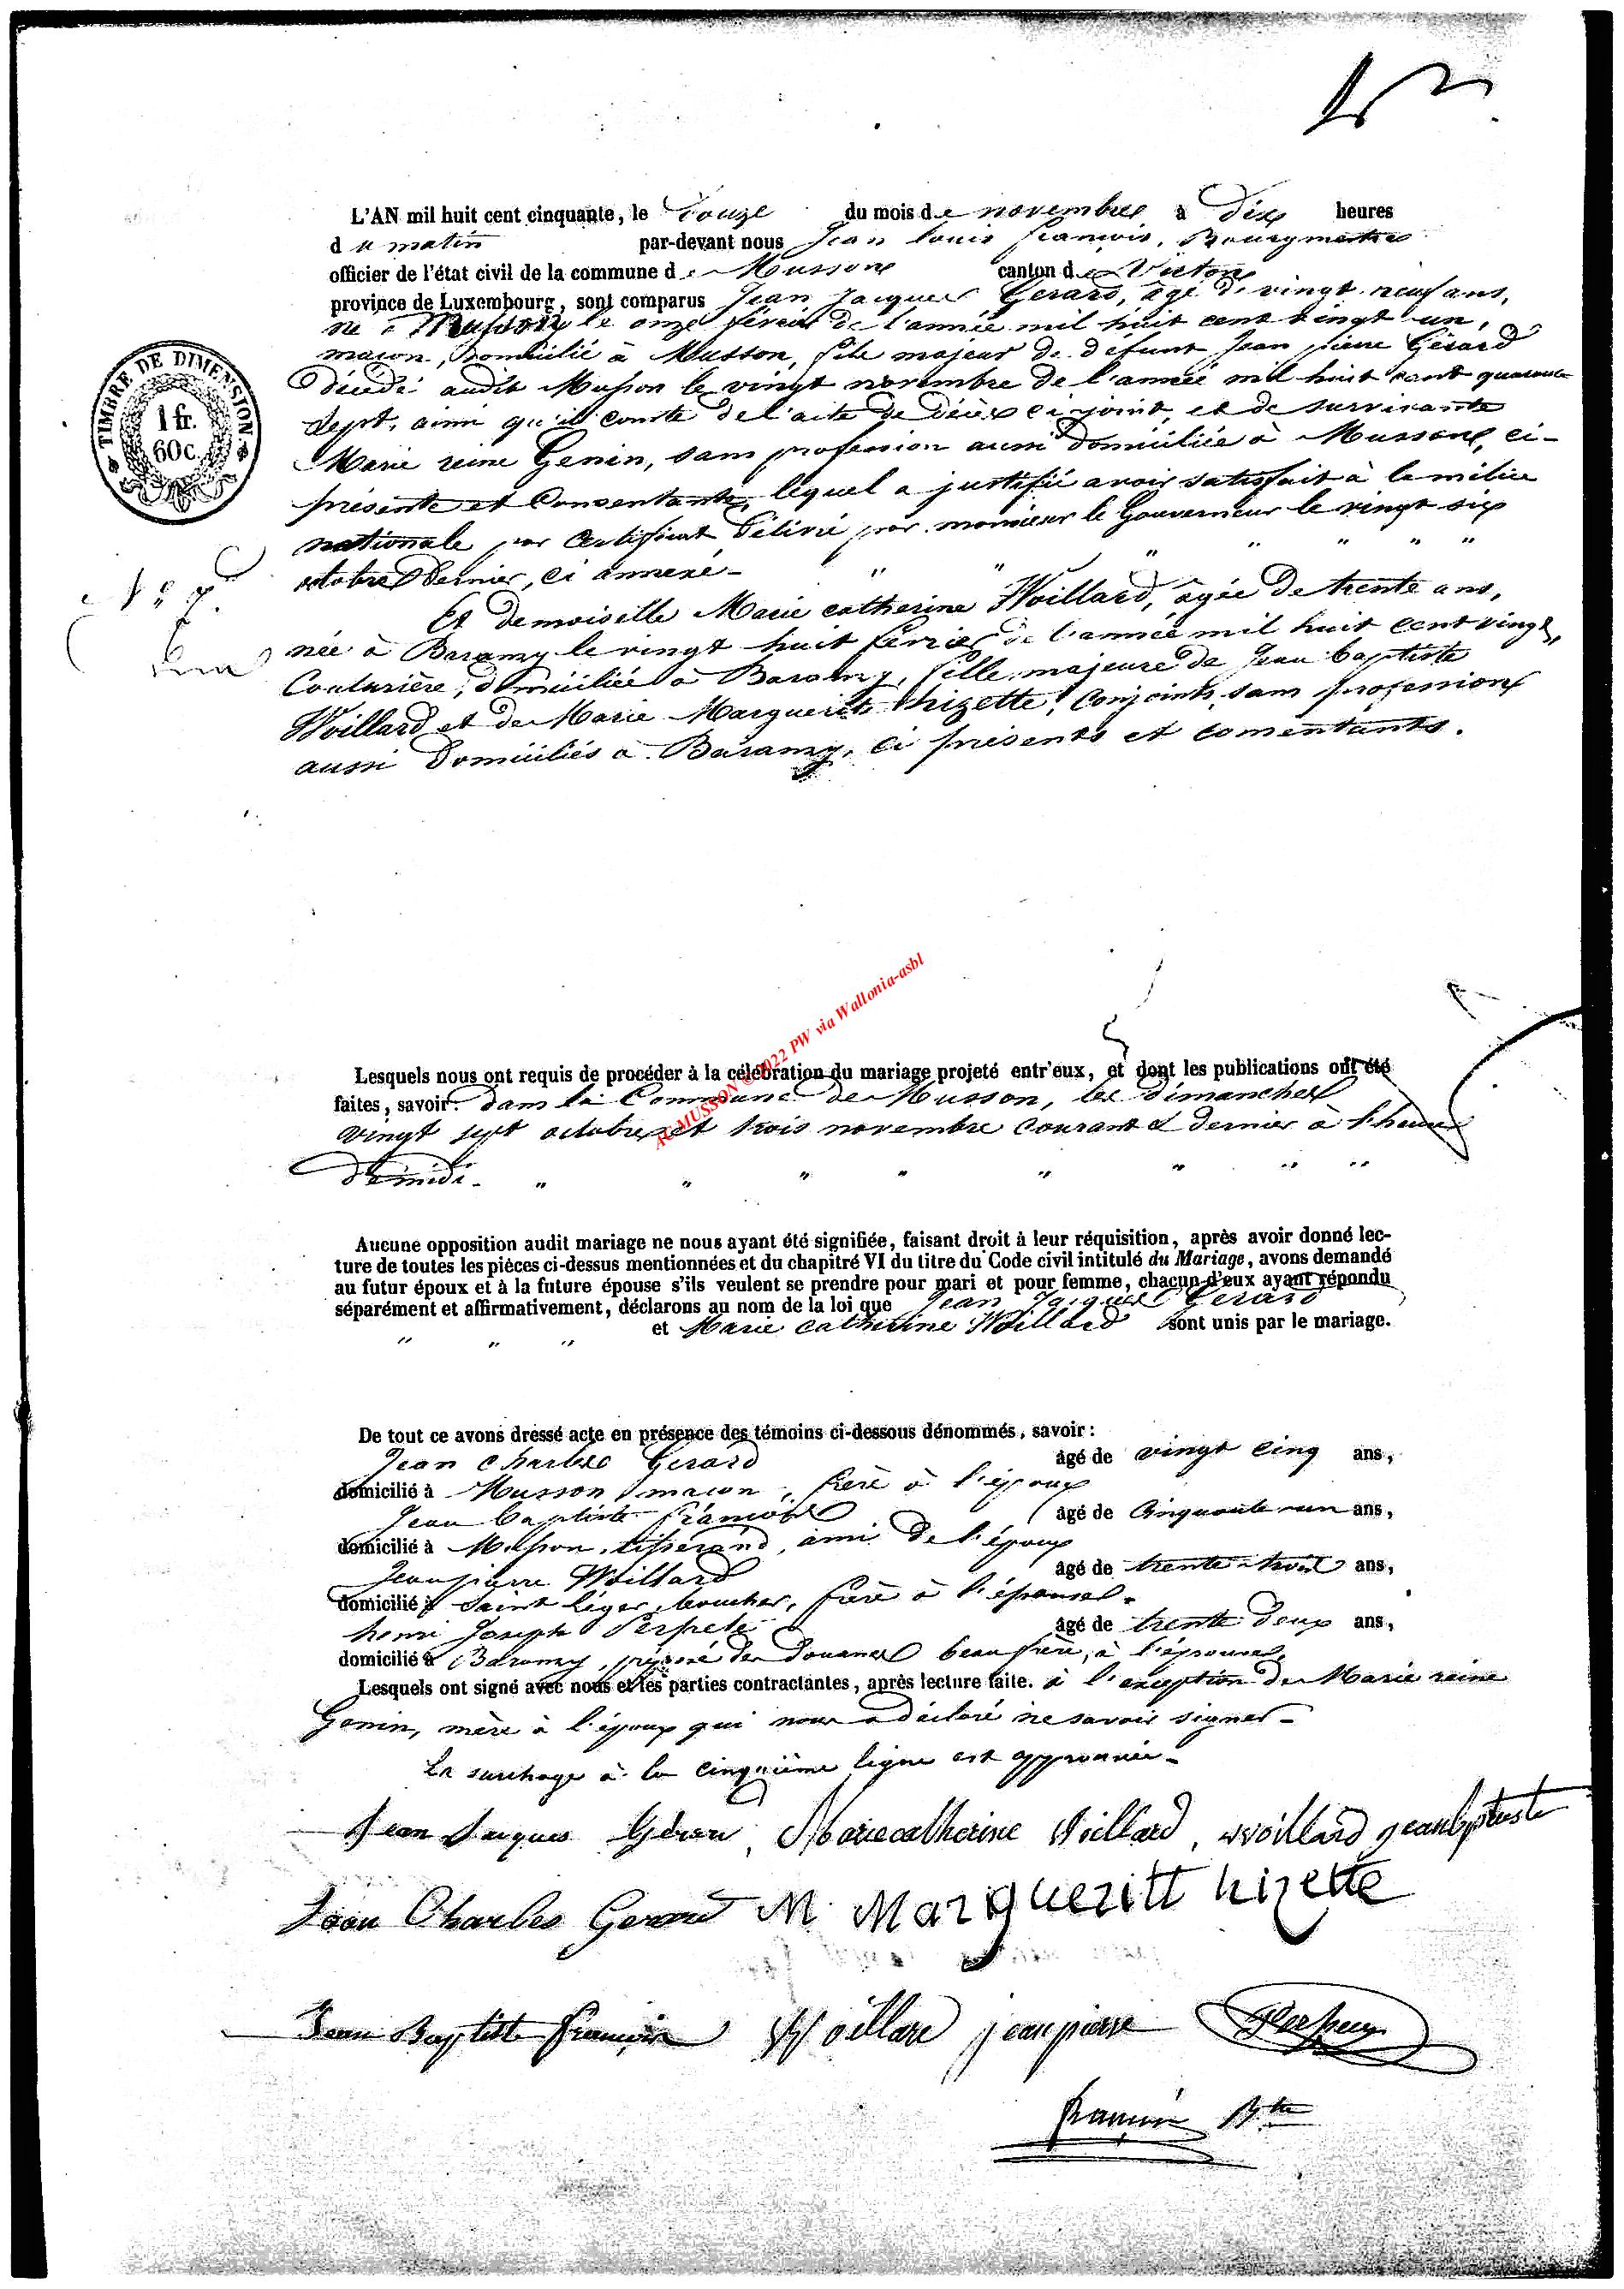 L'AN mil huit cent cinquante, le douze du mois de novembre à dix heures
du matin par-devant nous Jean louis françois, Bourgmestre
officier de l'état civil de la commune de Musson canton de Virton
province de Luxembourg, sont comparus Jean Jacques Gerard, âgé de vingt neuf ans,
né à Musson le onze février de l'année mil huit cent vingt un,
maçon, domicilié à Musson, fils majeur de défunt Jean pierre Gérard
décédé audit Musson le vingt novembre de l'année mil huit cent quarante
sept, ainsi qu'il conste de l'acte de décès ci-joint, et de survivante
Marie reine Genin, sans profession aussi domiciliée à Musson, ci-
présente et consentante, lequel a justifié avoir satisfait à la milice
nationale par certificat délivré par monsieur le Gouverneur le vingt six
octobre dernier, ci annexé - " " " " " " "
TIMBRE DE DIMENSION
1 fr.
60c.
N° 7.
Et demoiselle Marie catherine Woillard, âgée de trente ans,
née à Baranzy le vingt huit février de l'année mil huit cent vingt,
Couturière, domiciliée à Baranzy, fille majeure de Jean baptiste
Woillard et de Marie Marguerite hizette, conjoints, sans profession
aussi domiciliés à Baranzy, ci présents et consentants.
AC MUSSON © 2022 PW via Wallonia-asbl
Lesquels nous ont requis de procéder à la célébration du mariage projeté entr'eux, et dont les publications ont été
faites, savoir: dans la Commune de Musson, les dimanches
vingt sept octobre et trois novembre courant & dernier à l'heure
de midi - " " " " " " " "
Aucune opposition audit mariage ne nous ayant été signifiée, faisant droit à leur réquisition, après avoir donné lec-
ture de toutes les pièces ci-dessus mentionnées et du chapitré VI du titre du Code civil intitulé du Mariage, avons demandé
au futur époux et à la future épouse s'ils veulent se prendre pour mari et pour femme, chacun d'eux ayant répondu
séparément et affirmativement, déclarons au nom de la loi que Jean Jacques Gerard
" " " et Marie catherine Woillard sont unis par le mariage.
De tout ce avons dressé acte en présence des témoins ci-dessous dénommés, savoir:
Jean charles Gerard âgé de vingt cinq ans,
domicilié à Musson maçon, frère à l'époux
Jean baptiste françois âgé de Cinquante un ans,
domicilié à Musson, tisserand, ami de l'époux
Jean pierre Woillard âgé de trente trois ans,
domicilié à Saint Léger, boucher, frère à l'épouse.
henri Joseph Perpete âgé de trente deux ans,
domicilié à Baranzy, préposé des douanes beau frère, à l'épouse,
Lesquels ont signé avec nous et les parties contractantes, après lecture faite. à l'exception de Marie reine
Genin, mère à l'époux qui nous a déclaré ne savoir signer -
La surchage à la cinquième ligne est approuvée -
Jean Jacques Gérard, Marie catherine Woillard, Woillard jean baptiste
Jean Charles Gerard M Margueritt hizette
Jean Baptiste françois Woillard jean pierre Perpete
françois Btre